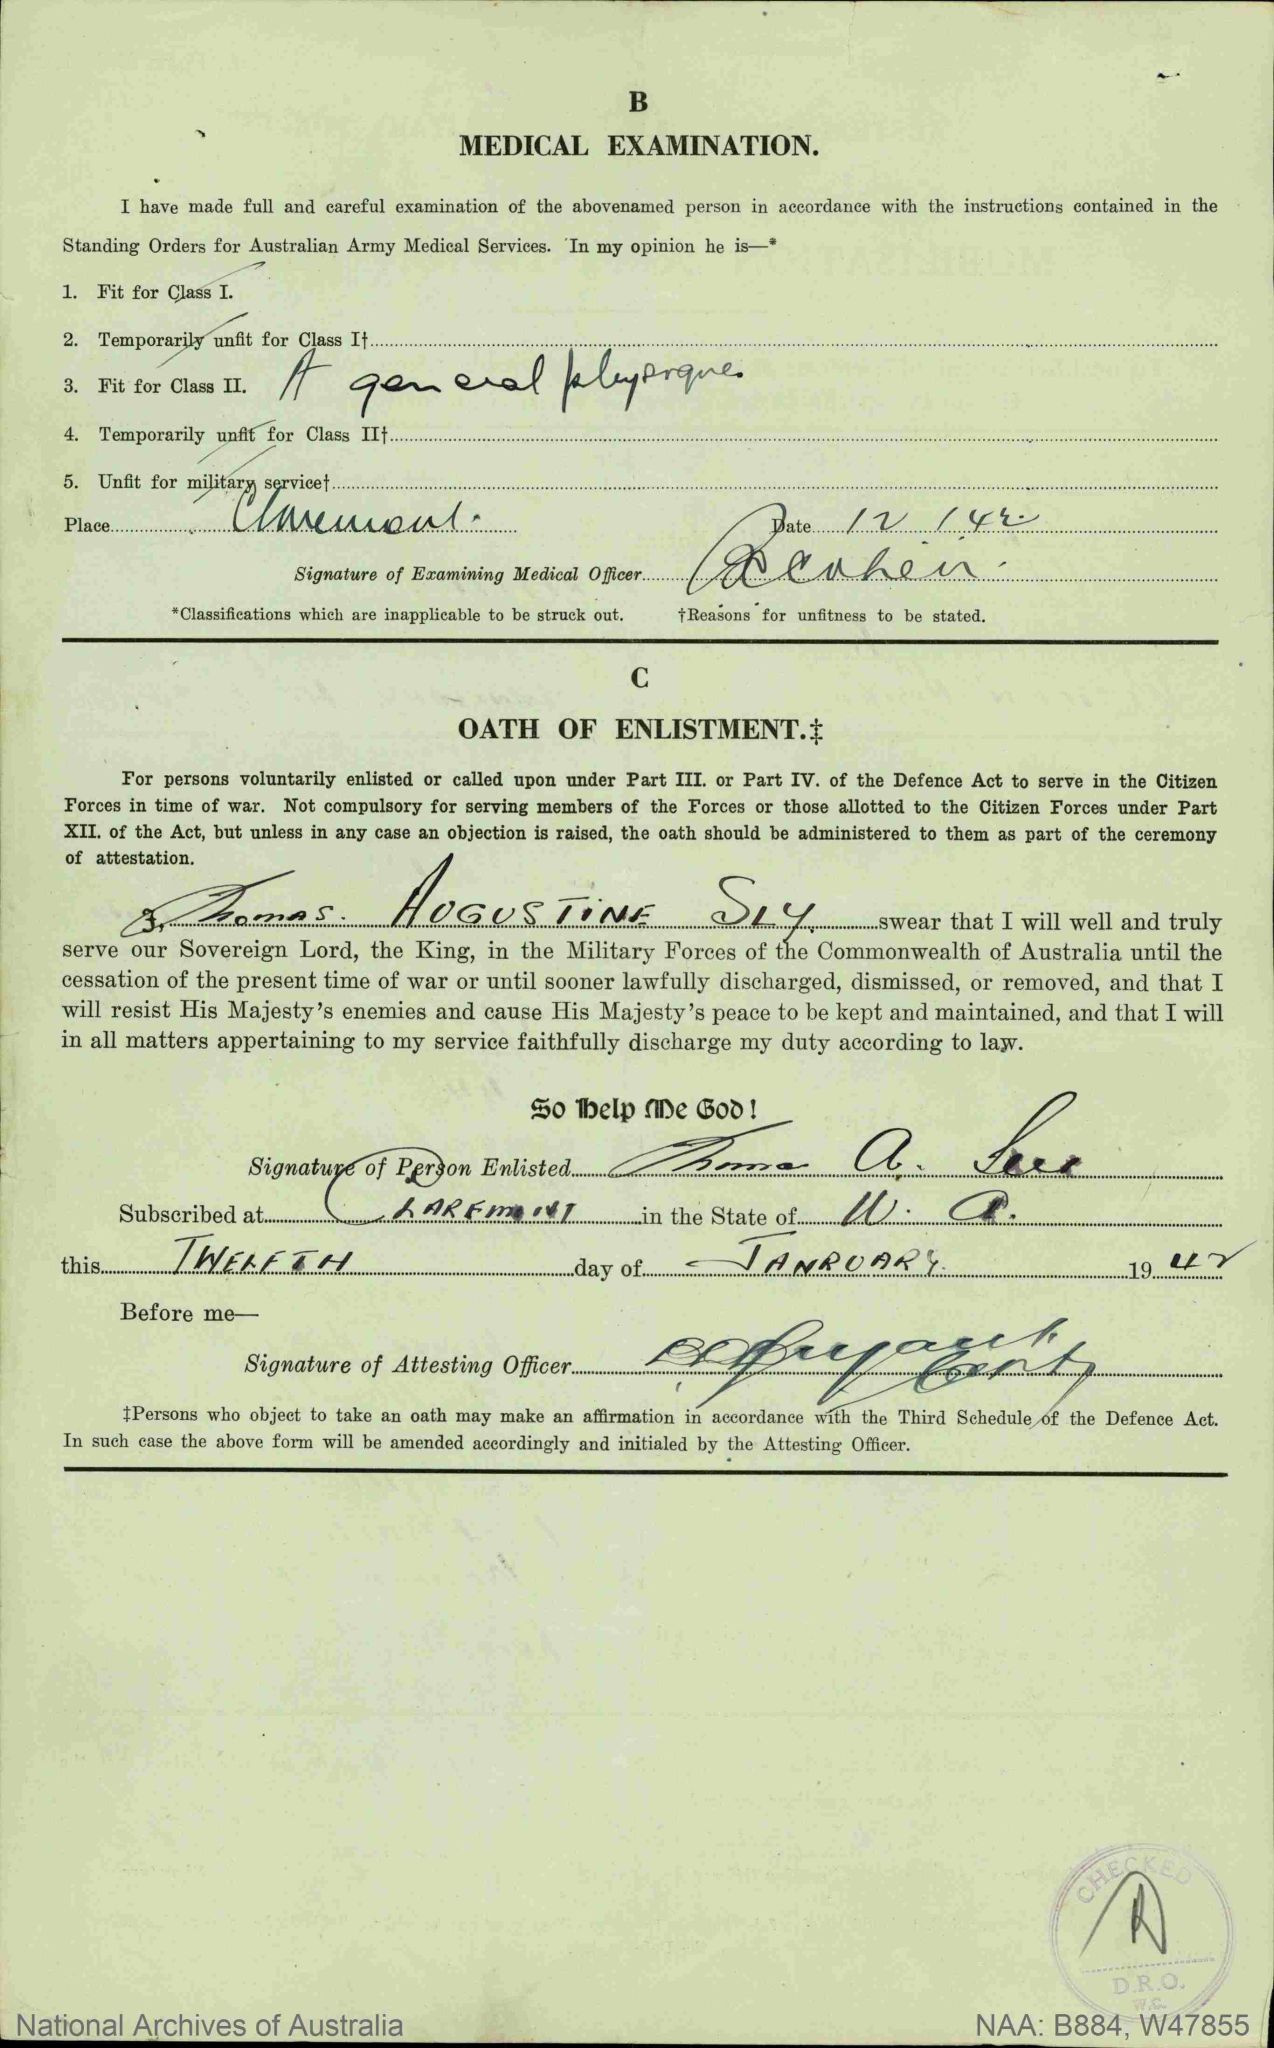 B
MEDICAL EXAMINATION.
I have made full and careful examination of the abovenamed person in accordance with the instructions contained in the
Standing Orders for Australian Army Medical Services. In my opinion he is—*
1. Fit for Class I.
2. Temporarily unfit for Class I†
3. Fit for Class II. A general physique.
4. Temporarily unfit for Class II†
5. Unfit for military service†
Place Claremont. Date 12 1 42.
Signature of Examining Medical Officer Cohen.
*Classifications which are inapplicable to be struck out. †Reasons for unfitness to be stated.
C
OATH OF ENLISTMENT.‡
For persons voluntarily enlisted or called upon under Part III. or Part IV. of the Defence Act to serve in the Citizen
Forces in time of war. Not compulsory for serving members of the Forces or those allotted to the Citizen Forces under Part
XII. of the Act, but unless in any case an objection is raised, the oath should be administered to them as part of the ceremony
of attestation.
I, Thomas. AUGUSTINE SLY. swear that I will well and truly
serve our Sovereign Lord, the King, in the Military Forces of the Commonwealth of Australia until the
cessation of the present time of war or until sooner lawfully discharged, dismissed, or removed, and that I
will resist His Majesty's enemies and cause His Majesty's peace to be kept and maintained, and that I will
in all matters appertaining to my service faithfully discharge my duty according to law.
So Help Me God!
Signature of Person Enlisted Thomas A.
Subscribed at CLAREMONT in the State of W. A.
this TWELFTH day of JANRUARY. 1942
Before me—
Signature of Attesting Officer
‡Persons who object to take an oath may make an affirmation in accordance with the Third Schedule of the Defence Act.
In such case the above form will be amended accordingly and initialed by the Attesting Officer.
CHECKED
D.R.O.
National Archives of Australia NAA: B884, W47855